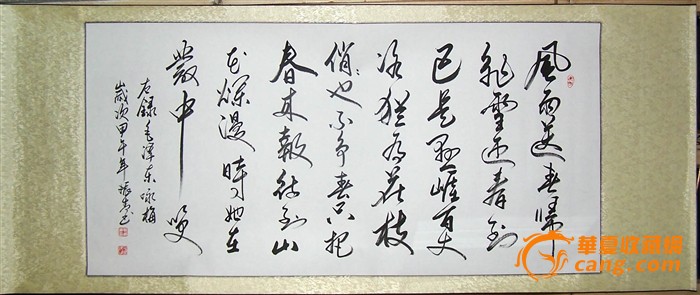 風雨送春歸
飛雪迎春到
已是懸崖百丈
冰猶有花枝
俏〻也不争春只把
春来報待到山
花爛漫時她在
叢中笑
右録毛澤东咏梅
歲次甲午年振书
華夏收藏網
cang.com